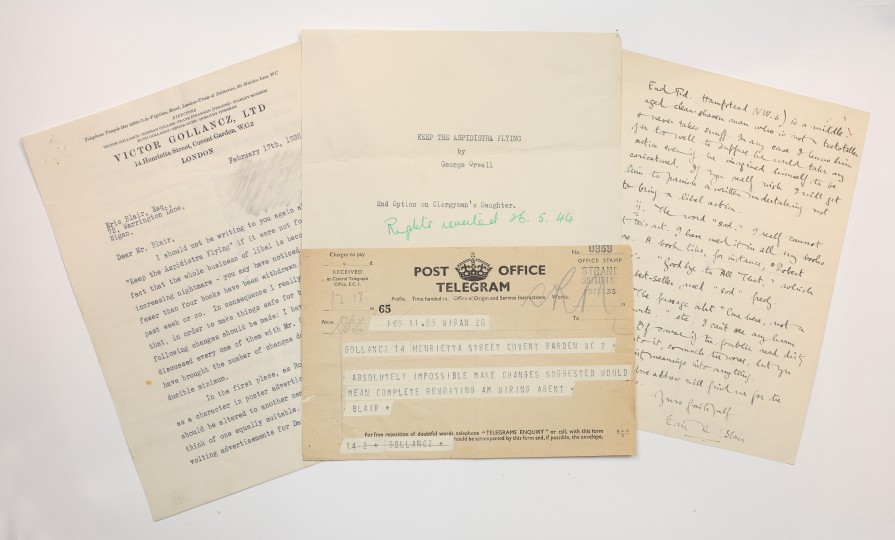 VICTOR GOLLANCZ, LTD
14 Henrietta Street, Covent Garden, W.C.2
LONDON
February 17th, 1936
Eric Blair, Esq.,
72, Warrington Lane,
Wigan.
Dear Mr. Blair,
I should not be writing to you again a
"Keep the Aspidistra Flying" if it were not fo
fact that the whole business of libel is beco
increasing nightmare - you may have noticed
fewer than four books have been withdrawn
past week or so. In consequence I really
that, in order to make things safe for b
following changes should be made. I hav
discussed every one of them with Mr.
have brought the number of changes d
ducible minimum.
In the first place, as Ro
as a character in poster adverti
should be altered to another na
think of one equally suitable.
volting advertisements for Da
KEEP THE ASPIDISTRA FLYING
by
George Orwell
2nd Option on Clergyman's Daughter.
Rights reverted 26.5.44
Charges to pay
d
RECEIVED
at Central Telegraph
Office, E.C.1.
POST OFFICE
TELEGRAM
No. 0353
OFFICE STAMP
Prefix. Time handed in. Office of Origin and Service Instructions. Words.
65
From
To
165 11.55 WIGAN 20
GOLLANCZ 14 HENRIETTA STREET COVENT GARDEN WC 2 =
ABSOLUTELY IMPOSSIBLE MAKE CHANGES SUGGESTED WOULD
MEAN COMPLETE REWRITING AM WIRING AGENT =
BLAIR +
For free repetition of doubtful words telephone "TELEGRAMS ENQUIRY" or call, with this form
14 2 + GOLLANCZ + should be accompanied by this form and, if possible, the envelope.
End Rd. Hampstead N.W.6) is a middle-
aged clean-shaven man who is not a teetotaller
& never takes snuff. In any case I know him
far too well to suppose he would take any
action even if he imagined himself to be
caricatured. If you really wish I will get
him to furnish a written undertaking not
to bring a libel action.
ii. The word "sod." I really cannot
this out. I have used it in all my books
A book like, for instance, Robert
"Goodbye to All That", which
best-seller, used "sod" freely.
The passage abt "Cane here, not a
etc. I can't see any harm
Of course if the public read dirty
into it, so much the worse, but you
meanings into anything.
address will find me for the
Yours faithfully
Eric A. Blair